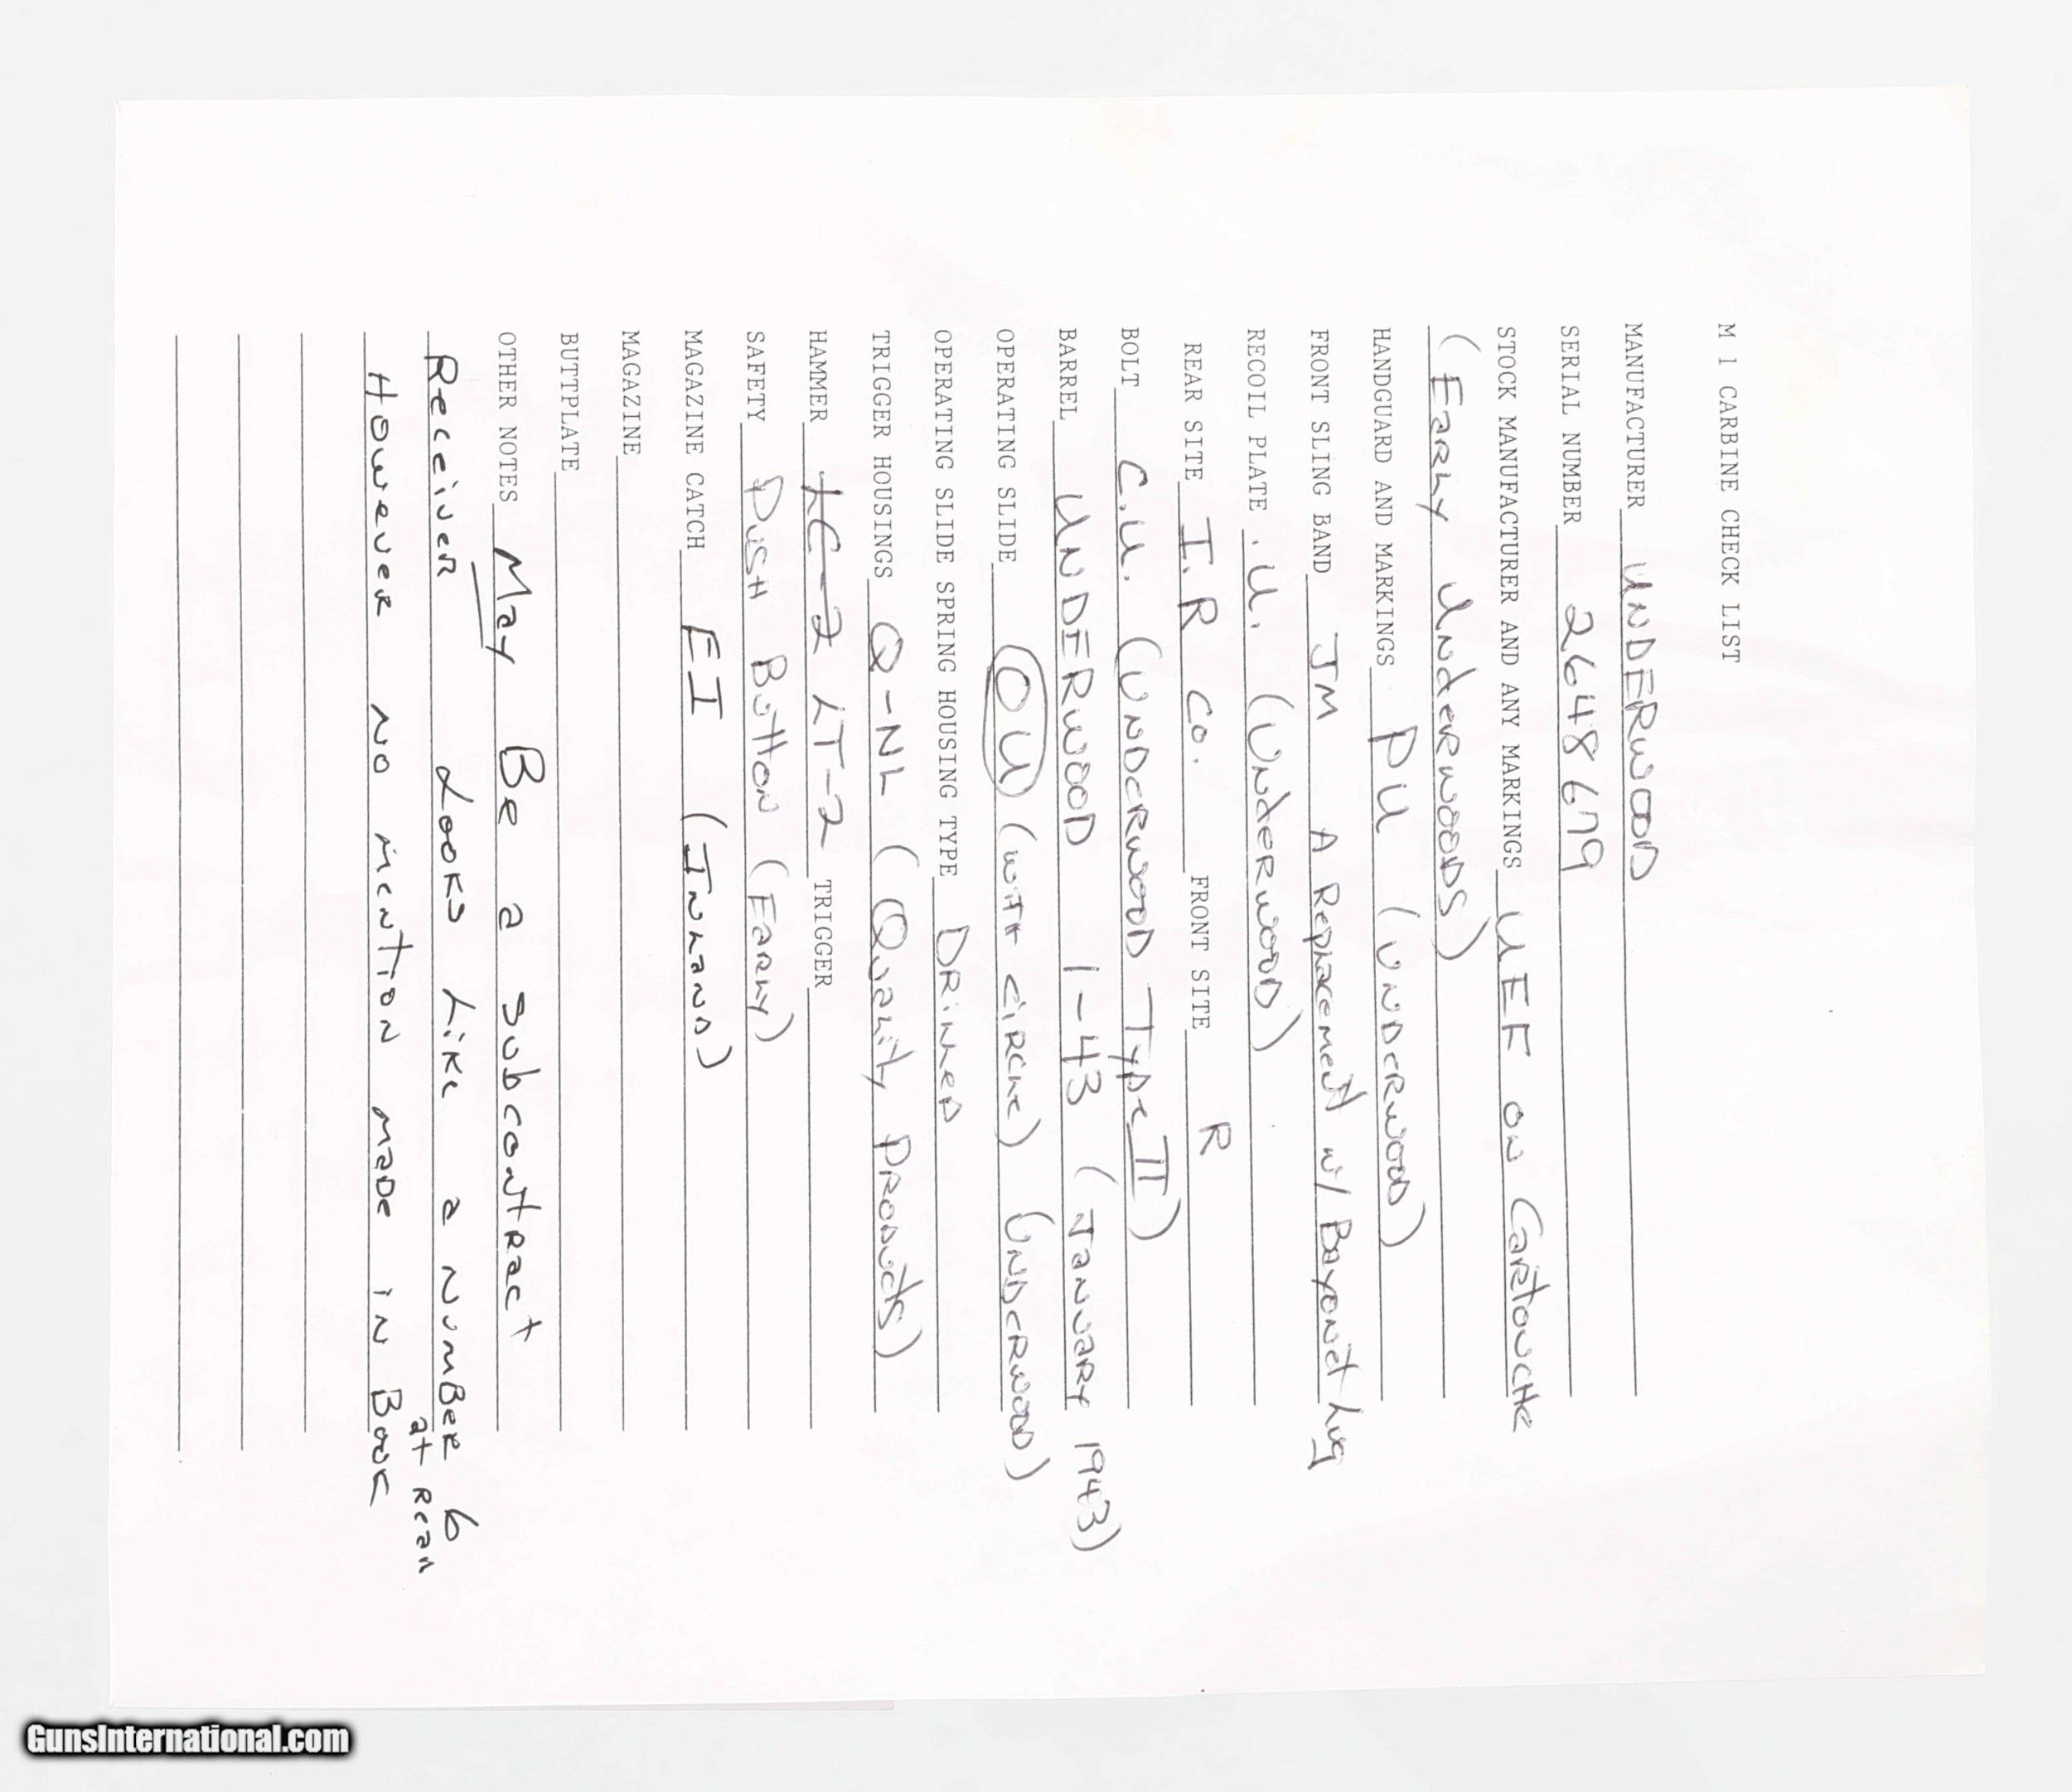 M 1 CARBINE CHECK LIST
MANUFACTURER UNDERWOOD
SERIAL NUMBER 2648679
STOCK MANUFACTURER AND ANY MARKINGS UEF ON CARTOUCHE
(EARLY UNDERWOODS)
HANDGUARD AND MARKINGS PU (UNDERWOOD)
FRONT SLING BAND JM A Replacement w/ Bayonet Lug
RECOIL PLATE .U. (UNDERWOOD)
REAR SITE I.R CO. FRONT SITE R
BOLT C.U. (UNDERWOOD Type II)
BARREL UNDERWOOD 1-43 (JANUARY 1943)
OPERATING SLIDE OU (WITH CIRCLE) (UNDERWOOD)
OPERATING SLIDE SPRING HOUSING TYPE DRILLED
TRIGGER HOUSINGS Q-NL (Quality PRODUCTS)
HAMMER LT-2 TRIGGER
SAFETY PUSH BUTTON (EARLY)
MAGAZINE CATCH EI (INLAND)
MAGAZINE
BUTTPLATE
OTHER NOTES May Be a subcontract
Receiver Looks Like a NUMBER 6
at Rear
However no mention made in Book
GunsInternational.com